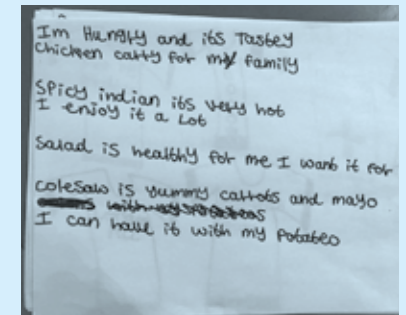 Im Hungry and its Tastey
Chicken carry for my family
Spicy indian its very hot
I enjoy it a Lot
Salad is healthy for me I want it for
coleSaw is yummy carrots and mayo
I can have it with my potateo